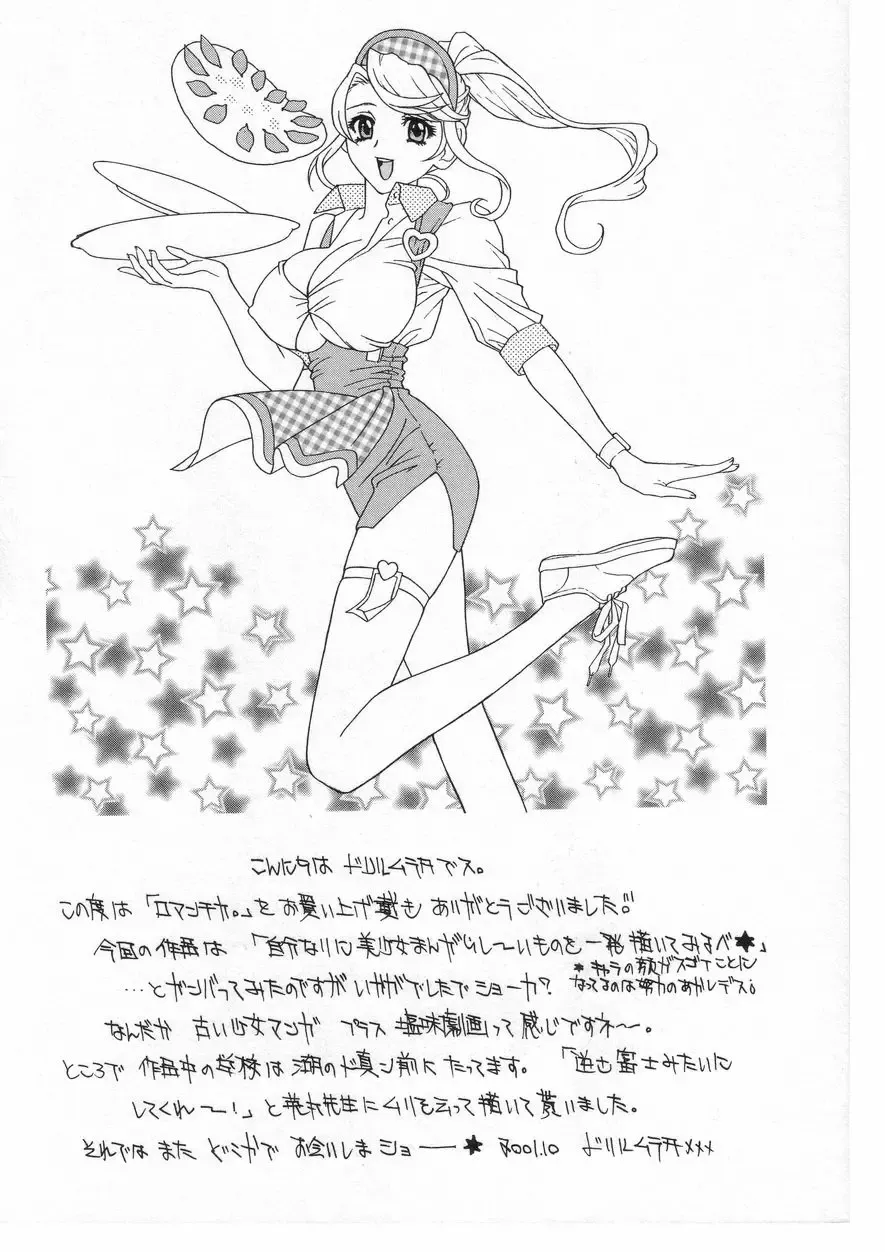 こんにちは ドリルムラタでス。
この度は「ロマンチカ。」をお買い上げ戴き ありがとうございました!!
今回の作品は 「自分なりに美少女まんがらし〜いものを一発描いてみるべ★」
…とガンバってみたのですが いかがでしたでショーカ?
*キャラの顔がスゴイことに
なってるのは努力のあかしデス。
なんだか 古い少女マンガ プラス 塩味劇画って感じですネ〜。
ところで 作品中の学校は湖のド真ン前にたってます。「逆さ富士みたいに
してくれ〜!」と荒木先生にムリを云って描いて貰いました。
それでは また どこかで お会いしまショー★ 2001.10 ドリルムラタ×××